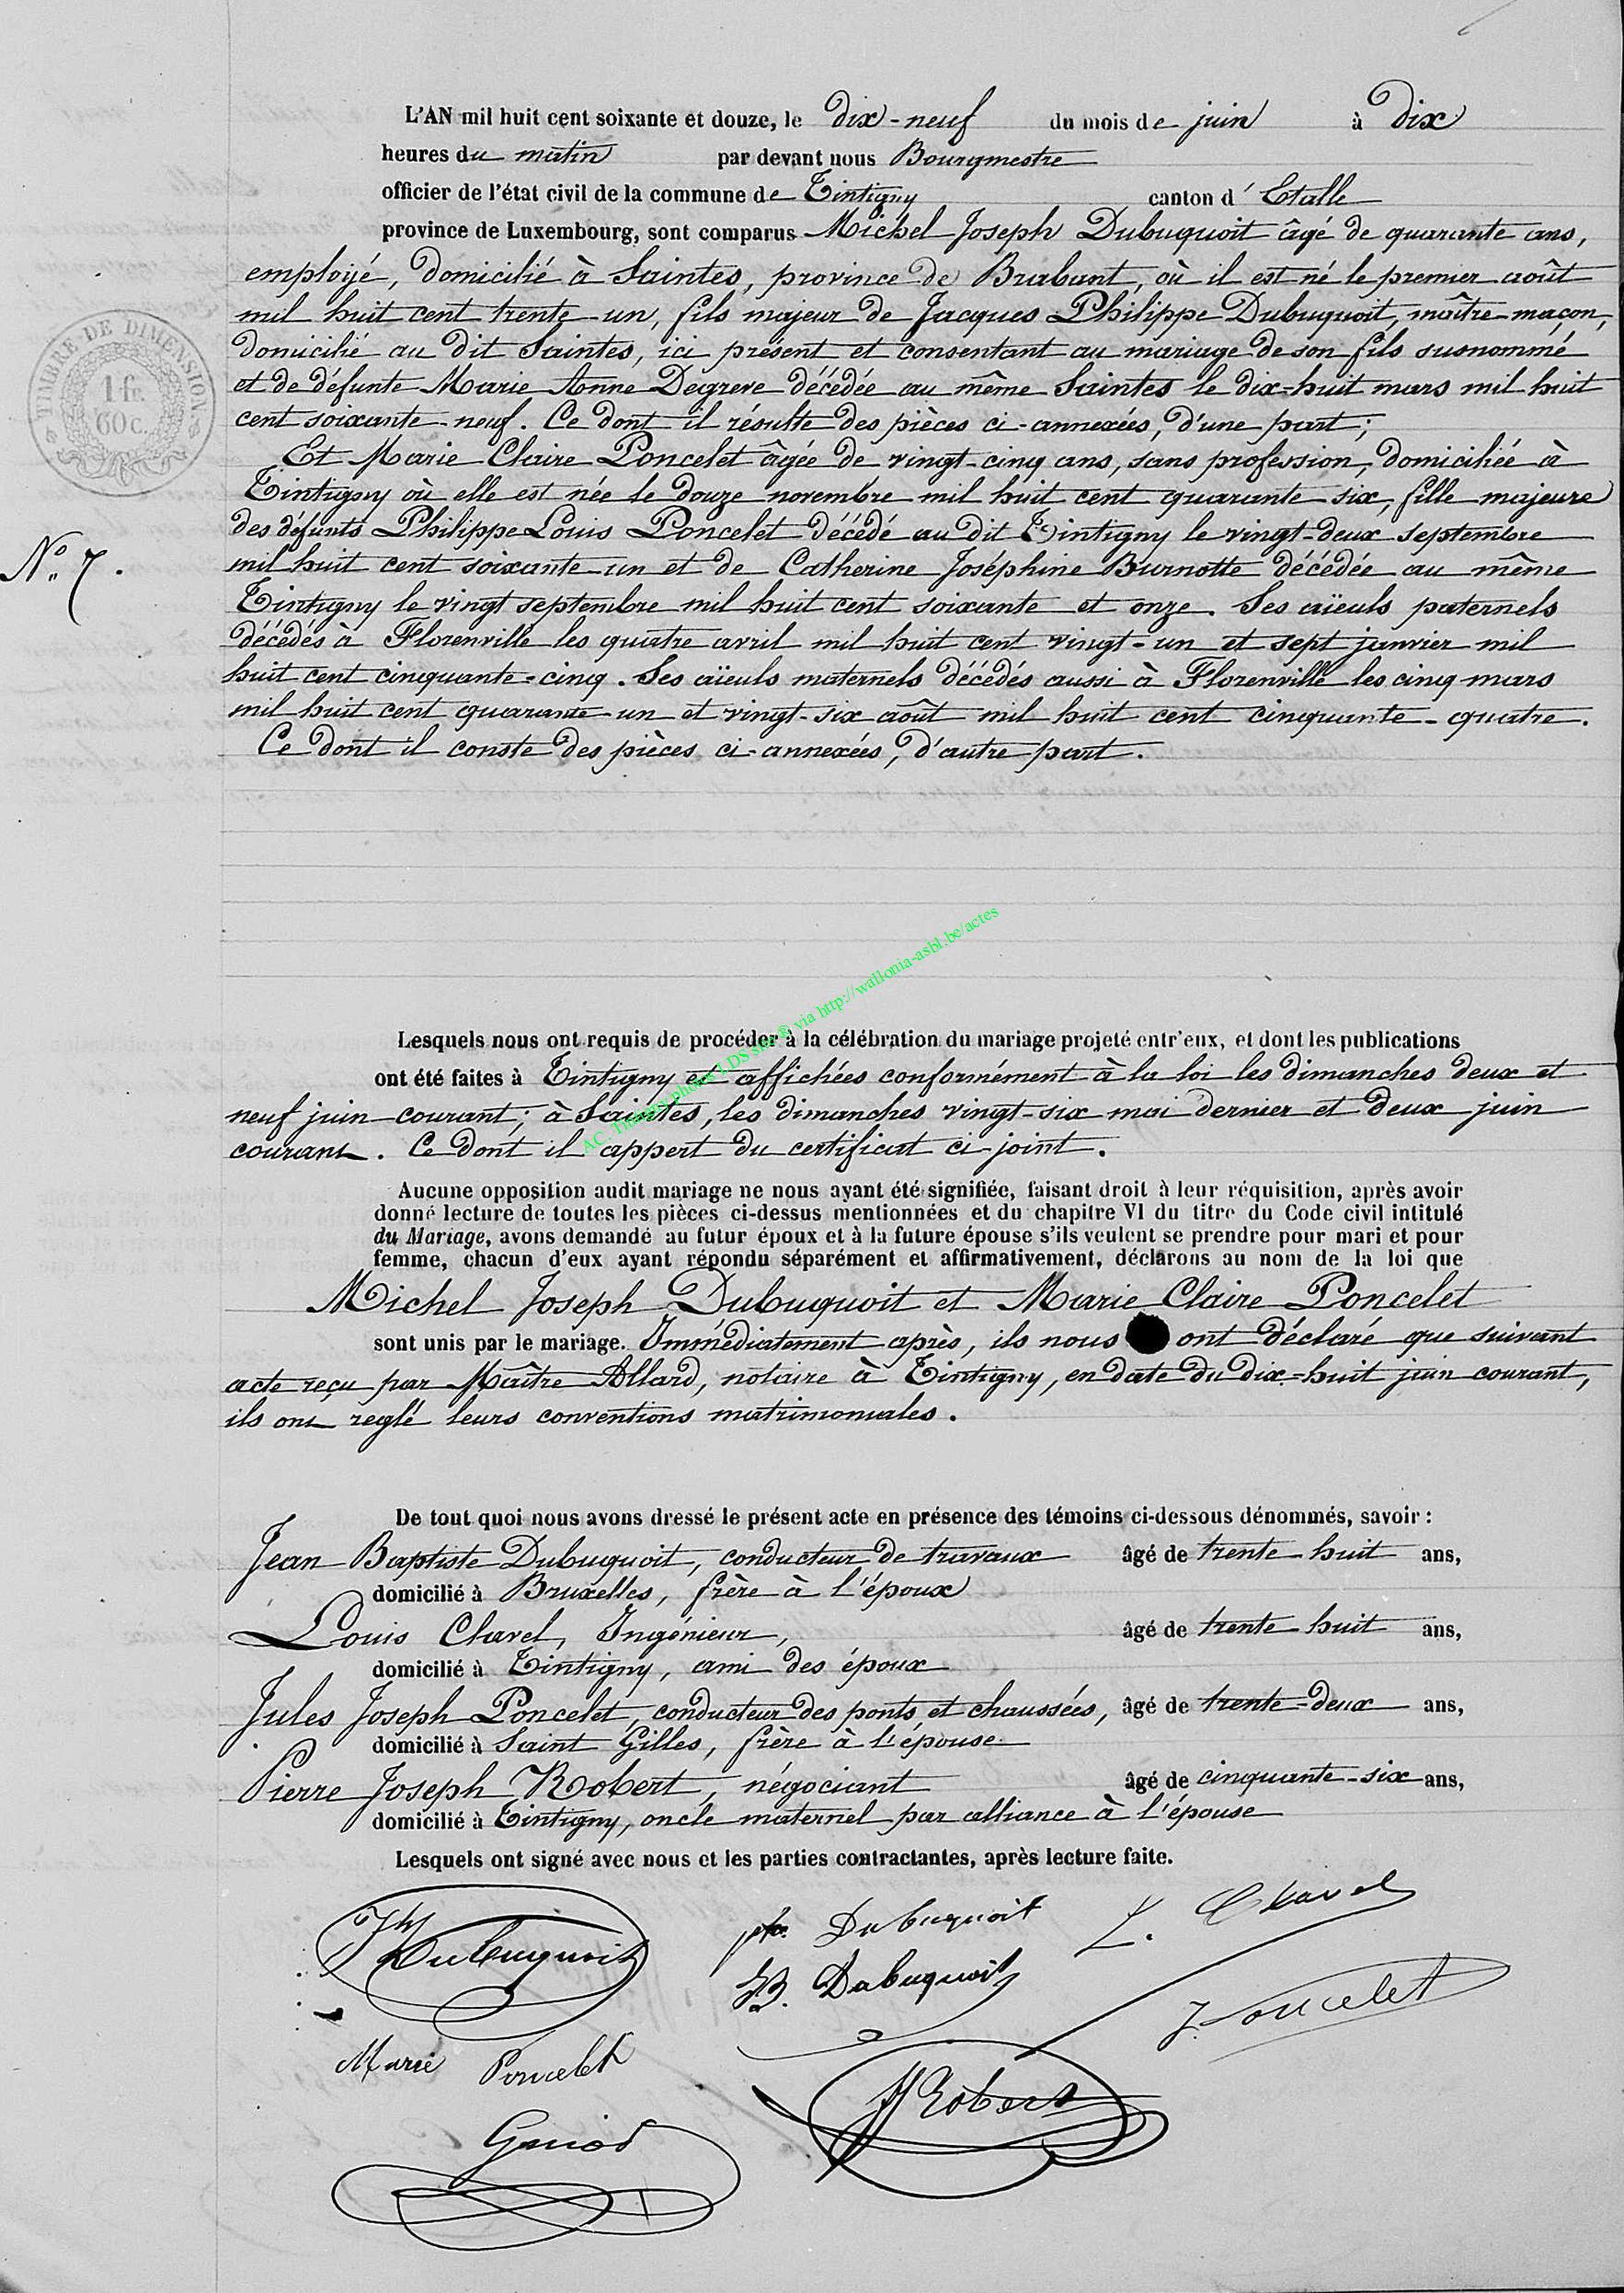 L'AN mil huit cent soixante et douze, le dix-neuf du mois de juin à dix
heures du matin par devant nous Bourgmestre
officier de l'état civil de la commune de Tintigny canton d' Etalle
province de Luxembourg, sont comparus Michel Joseph Dubuquoit âgé de quarante ans,
employé, domicilié à Saintes, province de Brabant, où il est né le premier août
mil huit cent trente-un, fils majeur de Jacques Philippe Dubuquoit, maître-maçon,
domicilié au dit Saintes, ici présent et consentant au mariage de son fils susnommé
et de défunte Marie Anne Degreve décédée au même Saintes le dix-huit mars mil huit
cent soixante-neuf. Ce dont il résulte des pièces ci-annexées, d'une part;
TIMBRE DE DIMENSIONS
1 fr.
60 c.
Et Marie Claire Poncelet âgée de vingt-cinq ans, sans profession, domiciliée à
Tintigny où elle est née le douze novembre mil huit cent quarante-six, fille majeure
des défunts Philippe Louis Poncelet décédé au dit Tintigny le vingt-deux septembre
N° 7.
mil huit cent soixante-un et de Catherine Joséphine Burnotte décédée au même
Tintigny le vingt septembre mil huit cent soixante et onze. Ses aïeuls paternels
décédés à Florenville les quatre avril mil huit cent vingt-un et sept janvier mil
huit cent cinquante-cinq. Ses aïeuls maternels décédés aussi à Florenville les cinq mars
mil huit cent quarante-un et vingt-six août mil huit cent cinquante-quatre.
Ce dont il conste des pièces ci-annexées, d'autre part.
via http://wallonia-asbl.be/actes
Lesquels nous ont requis de procéder à la célébration du mariage projeté entr'eux, et dont les publications
ont été faites à Tintigny et affichées conformément à la loi les dimanches deux et
neuf juin courant; à Saintes, les dimanches vingt-six mai dernier et deux juin
courant. Ce dont il appert du certificat ci-joint.
Aucune opposition audit mariage ne nous ayant été signifiée, faisant droit à leur réquisition, après avoir
donné lecture de toutes les pièces ci-dessus mentionnées et du chapitre VI du titre du Code civil intitulé
du Mariage, avons demandé au futur époux et à la future épouse s'ils veulent se prendre pour mari et pour
femme, chacun d'eux ayant répondu séparément et affirmativement, déclarons au nom de la loi que
Michel Joseph Dubuquoit et Marie Claire Poncelet
sont unis par le mariage. Immédiatement après, ils nous ont déclaré que suivant
acte reçu par Maître Allard, notaire à Tintigny, en date du dix-huit juin courant,
ils ont reglé leurs conventions matrimoniales.
De tout quoi nous avons dressé le présent acte en présence des témoins ci-dessous dénommés, savoir :
Jean Baptiste Dubuquoit, conducteur de travaux âgé de trente-huit ans,
domicilié à Bruxelles, frère à l'époux
Louis Clavel, Ingénieur, âgé de trente-huit ans,
domicilié à Tintigny, ami des époux
Jules Joseph Poncelet, conducteur des ponts et chaussées, âgé de trente-deux ans,
domicilié à Saint Gilles, frère à l'épouse
Pierre Joseph Robert, négociant âgé de cinquante-six ans,
domicilié à Tintigny, oncle maternel par alliance à l'épouse
Lesquels ont signé avec nous et les parties contractantes, après lecture faite.
Dubuquoit Dubuquoit L. Clavel
JB. Dubuquoit
J. Poncelet
Marie Poncelet
Robert